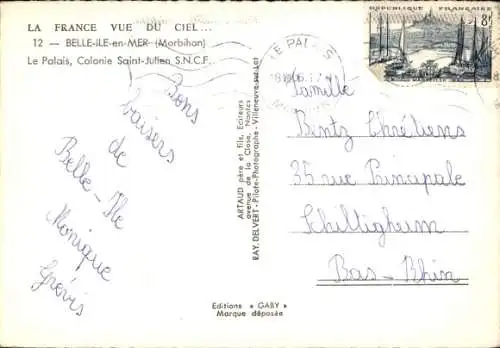 LA FRANCE VUE DU CIEL...
12 — BELLE-ILE-en-MER (Morbihan)
Le Palais, Colonie Saint-Julien S.N.C.F.
Bons
baisers
de
Belle-Ile
Monique
Grévis
ARTAUD père et fils, Editeurs
avenue de la Close, Nantes
RAY. DELVERT - Pilote-Photographe - Villeneuve-sur-Lot
Editions « GABY »
Marque déposée
REPUBLIQUE FRANÇAISE
8F
LE PALAIS
Famille
Bintz Chrétiens
35 rue Principale
Schiltigheim
Bas-Rhin